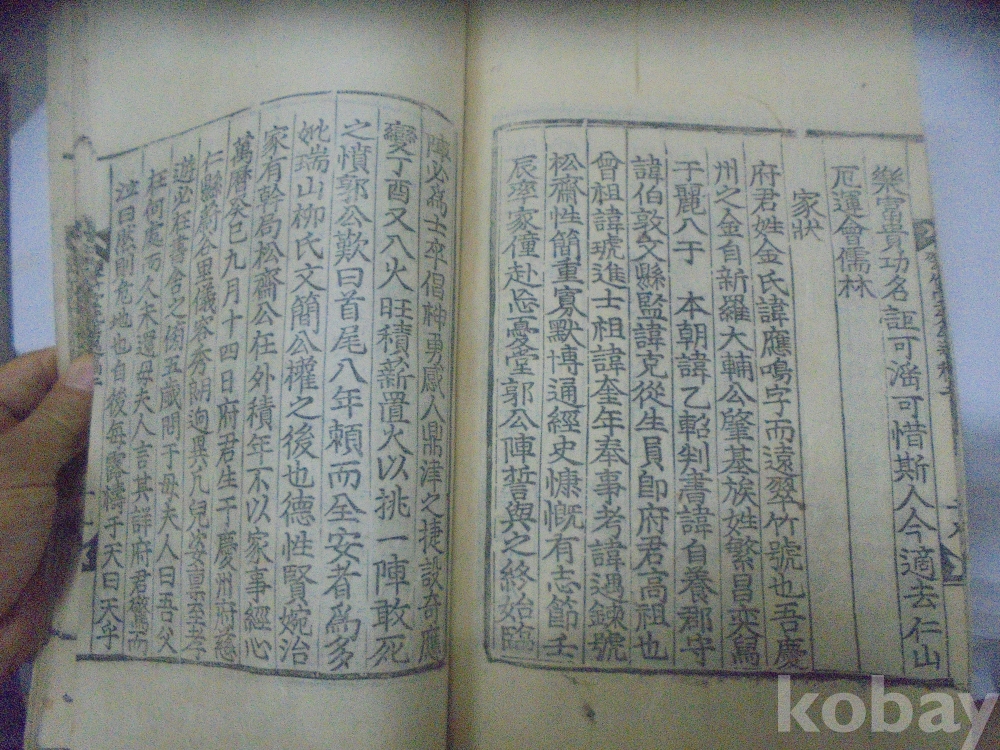 樂富貴功名詎可滔可惜斯人今適去仁山
厄運會儒林
家狀
府君姓金氏諱應鳴字而遠翠竹號也吾慶
州之金自新羅大輔公肇基族姓繁昌奕舃
于麗入于 本朝諱乙軺判書諱自養郡守
諱伯敦文縣監諱克從生員卽府君高祖也
曾祖諱琥進士祖諱奎年奉事考諱遇鍊號
松齋性簡重寡默博通經史慷慨有志節壬
辰率家僮赴忘憂堂郭公陣誓與之終始臨
陣必爲士卒倡神勇感人鼎津之捷設奇應
變丁酉又入火旺積薪置火以挑一陣敢死
之憤郭公歎曰首尾八年賴而全安者爲多
妣瑞山柳氏文簡公權之後也德性賢婉治
家有幹局松齋公在外積年不以家事經心
萬曆癸巳九月十四日府君生于慶州府慈
仁縣蔚合里儀容秀朗逈異凡兒姿稟至孝
遊必在書舍之側五歲問于母夫人曰吾父
在何處而久未還母夫人言其詳府君驚而
泣曰然則危地也自後每露禱于天曰天乎
kobay